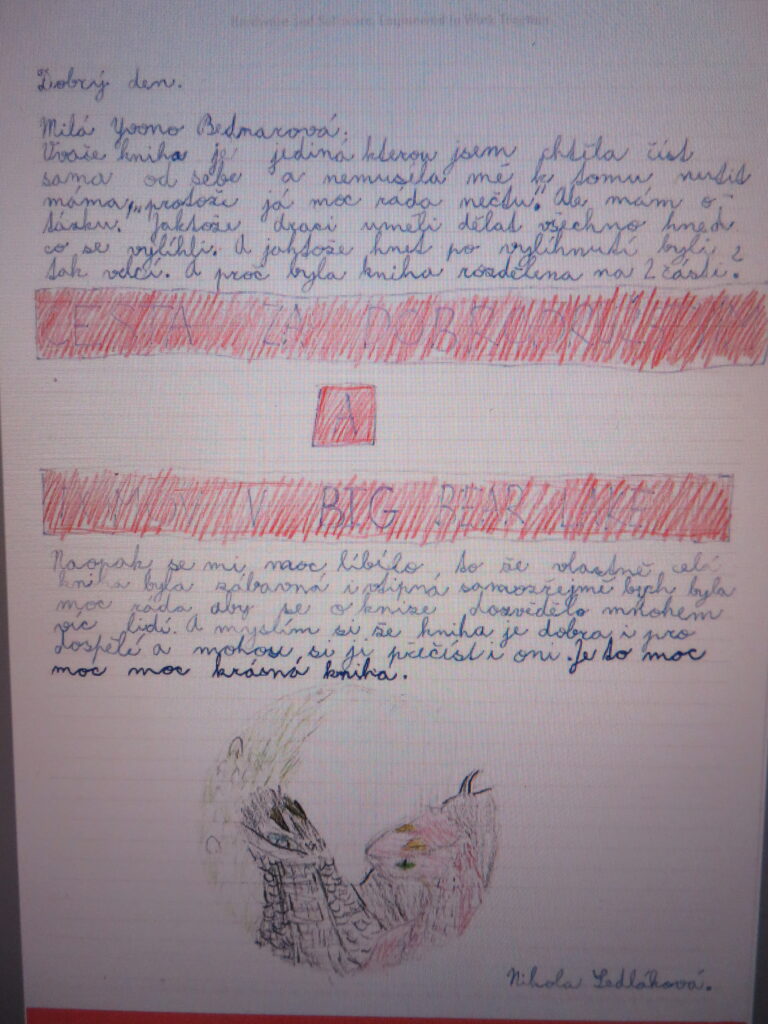 Dobrý den.
Milá Yvono Bednarová.
Vaše kniha je jediná kterou jsem chtěla číst
sama od sebe a nemusela mě k tomu nutit
máma, "protože já moc ráda nečtu". Ale mám o-
tázku. Jaktože draci uměli dělat všechno hned
co se vylíhli. A jaktože hnet po vylíhnutí byli
tak velcí. A proč byla kniha rozdělena na 2 části?
CESTA ZA
A
V BIG BEAR LAKE
Naopak se mi moc líbílo to že vlastně celá
kniha byla zábavná i vtipná samozřejmě bych byla
moc ráda aby se o knize dozvědělo mnohem
víc lidí. A myslím si že kniha je dobra i pro
dospělé a mohou si ji přečíst i oni. Je to moc
moc moc krásná kniha.
Nikola Sedláková.